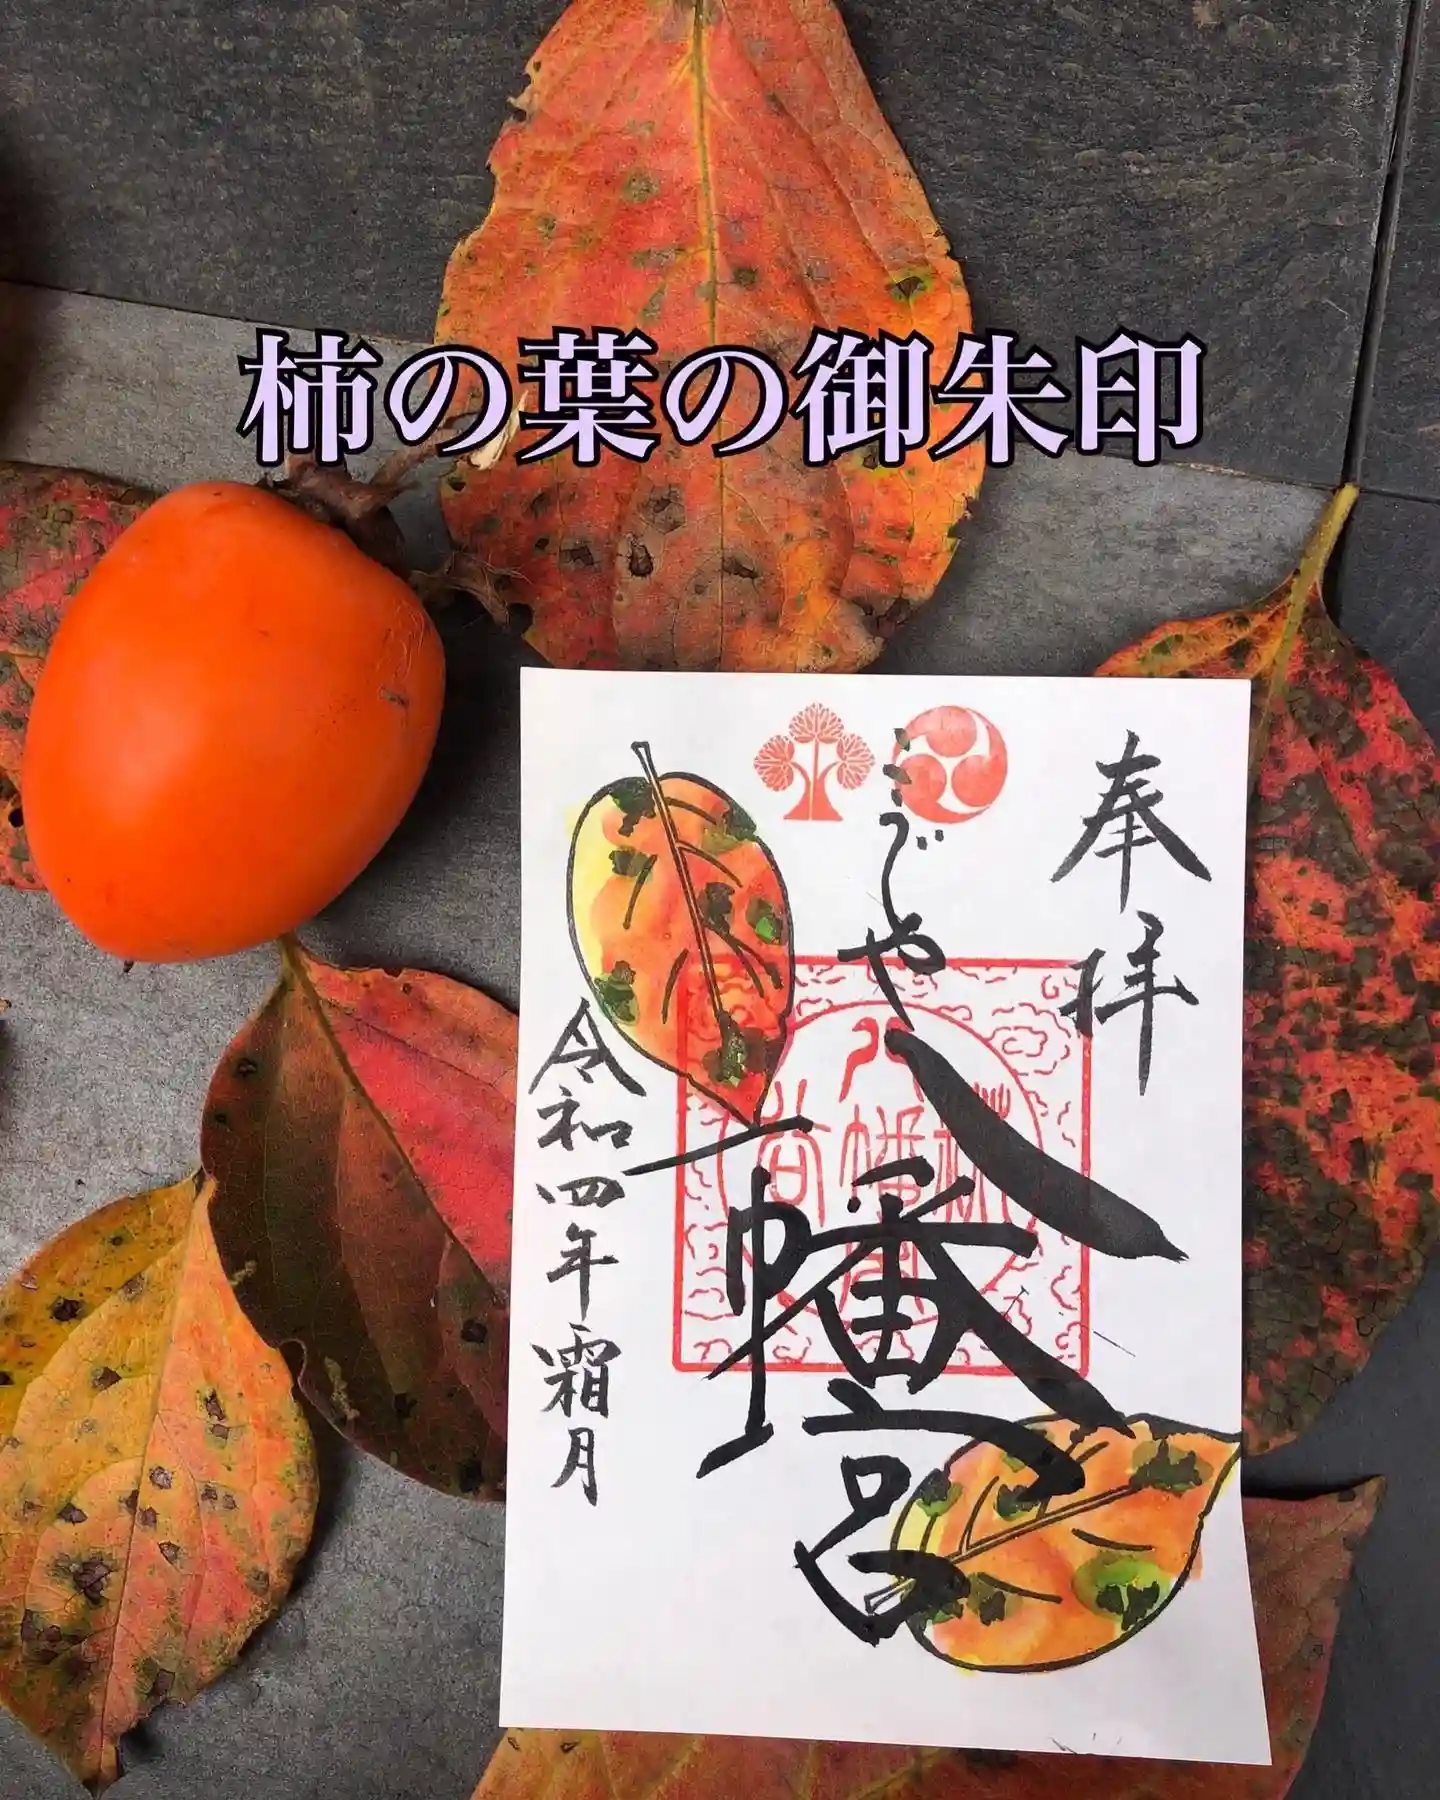 柿の葉の御朱印
奉拝
こうじや八幡宮
令和四年霜月